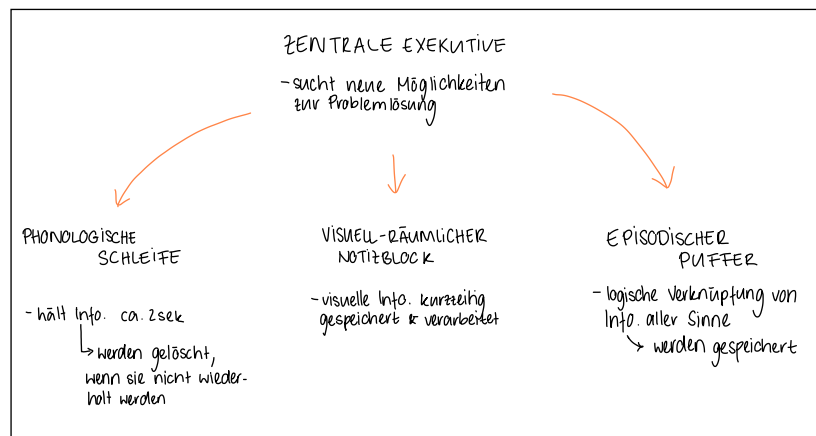 ZENTRALE EXEKUTIVE
- sucht neue Möglichkeiten
zur Problemlösung
PHONOLOGISCHE
SCHLEIFE
- hält Info. ca. 2sek
werden gelöscht,
wenn sie nicht wieder-
holt werden
VISUELL-RÄUMLICHER
NOTIZBLOCK
- visuelle Info. kurzzeitig
gespeichert & verarbeitet
EPISODISCHER
PUFFER
- logische Verknüpfung von
Info. aller Sinne
werden gespeichert